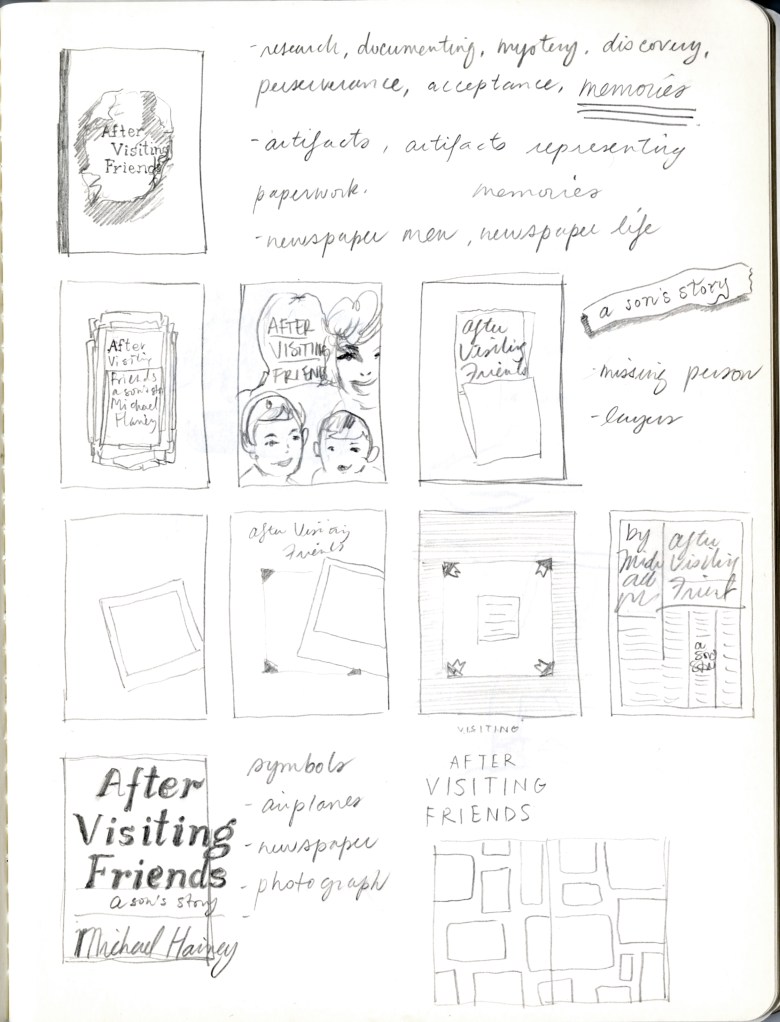 -research, documenting, mystery, discovery,
perseverance, acceptance, memories
-artifacts, artifacts representing
paperwork. memories
-newspaper men, newspaper life
After
Visiting
Friends
After
Visiting
Friends
a son's story
Michael
Hainey
AFTER
VISITING
FRIEND
After
Visiting
Friends
a son's story
-missing person
-layers
After Visiting
Friends
by
After
Visiting
Friend
a
son's
VISITING
After
Visiting
Friends
a son's story
Michael Hainey
symbols
- airplanes
- newspaper
- photograph
-
AFTER
VISITING
FRIENDS